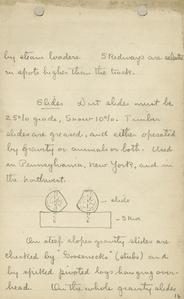 by steam loaders. Skidways are selected
in spots higher than the track.
Slides Dirt slides must be
25% grade, Snow 10%. Timber
slides are greased, and either operated
by gravity or animals or both. Used
in Pennsylvania, New York, and in
the northwest.
slide
skid
On steep slopes gravity slides are
checked by "Goosenecks" (stubs) and
by spiked pivoted logs hanging over-
head. On the whole gravity slides